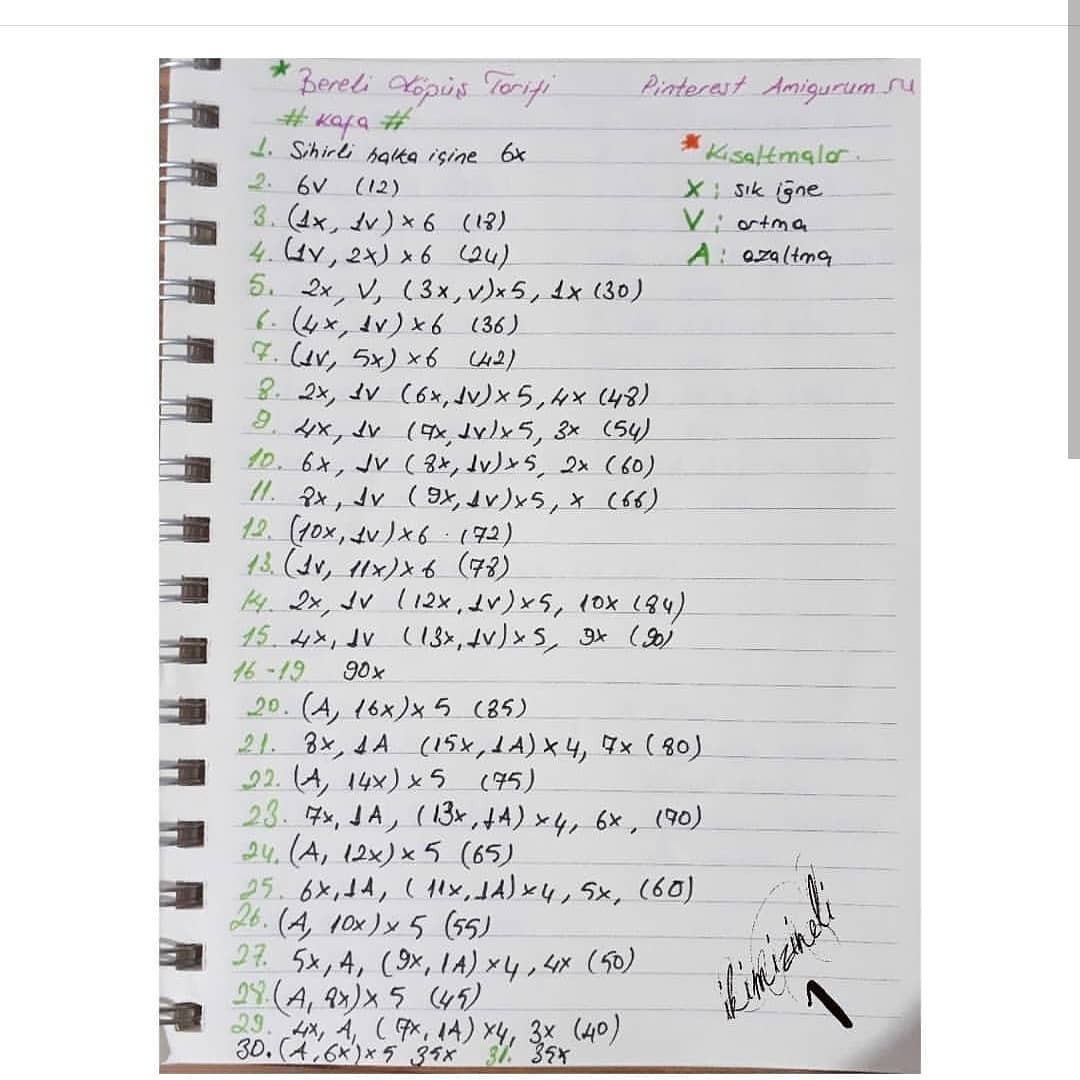 * Bereli Köpüş Tarifi Pinterest Amigurum.ru
# Kafa #
1. Sihirli halka içine 6x
* Kısaltmalar.
2. 6V (12)
X : sık iğne
3. (1x, 1v) x 6 (18)
V : artma
4. (1v, 2x) x6 (24)
A : azaltma
5. 2x, V, (3x, v)x5, 1x (30)
6. (4x, 1v) x 6 (36)
7. (1v, 5x) x 6 (42)
8. 2x, 1v (6x, 1v)x5, 4x (48)
9. 4x, 1v (7x, 1v)x5, 3x (54)
10. 6x, 1v (8x, 1v)x5, 2x (60)
11. 8x, 1v (9x, 1v)x5, x (66)
12. (10x, 1v)x6 (72)
13. (1v, 11x)x6 (78)
14. 2x, 1v (12x, 1v)x5, 10x (84)
15. 4x, 1v (13x, 1v)x5, 9x (90)
16-19 90x
20. (A, 16x)x5 (85)
21. 8x, 1A (15x, 1A)x4, 7x (80)
22. (A, 14x) x5 (75)
23. 7x, 1A, (13x, 1A) x4, 6x, (70)
24. (A, 12x)x5 (65)
25. 6x, 1A, (11x, 1A)x4, 5x, (60)
26. (A, 10x)x5 (55)
27. 5x, A, (9x, 1A)x4, 4x (50)
28. (A, 8x)x5 (45)
29. 4x, A, (7x, 1A) x4, 3x (40)
30. (A, 6x)x5 35x 31. 35x
ikimizineli
1